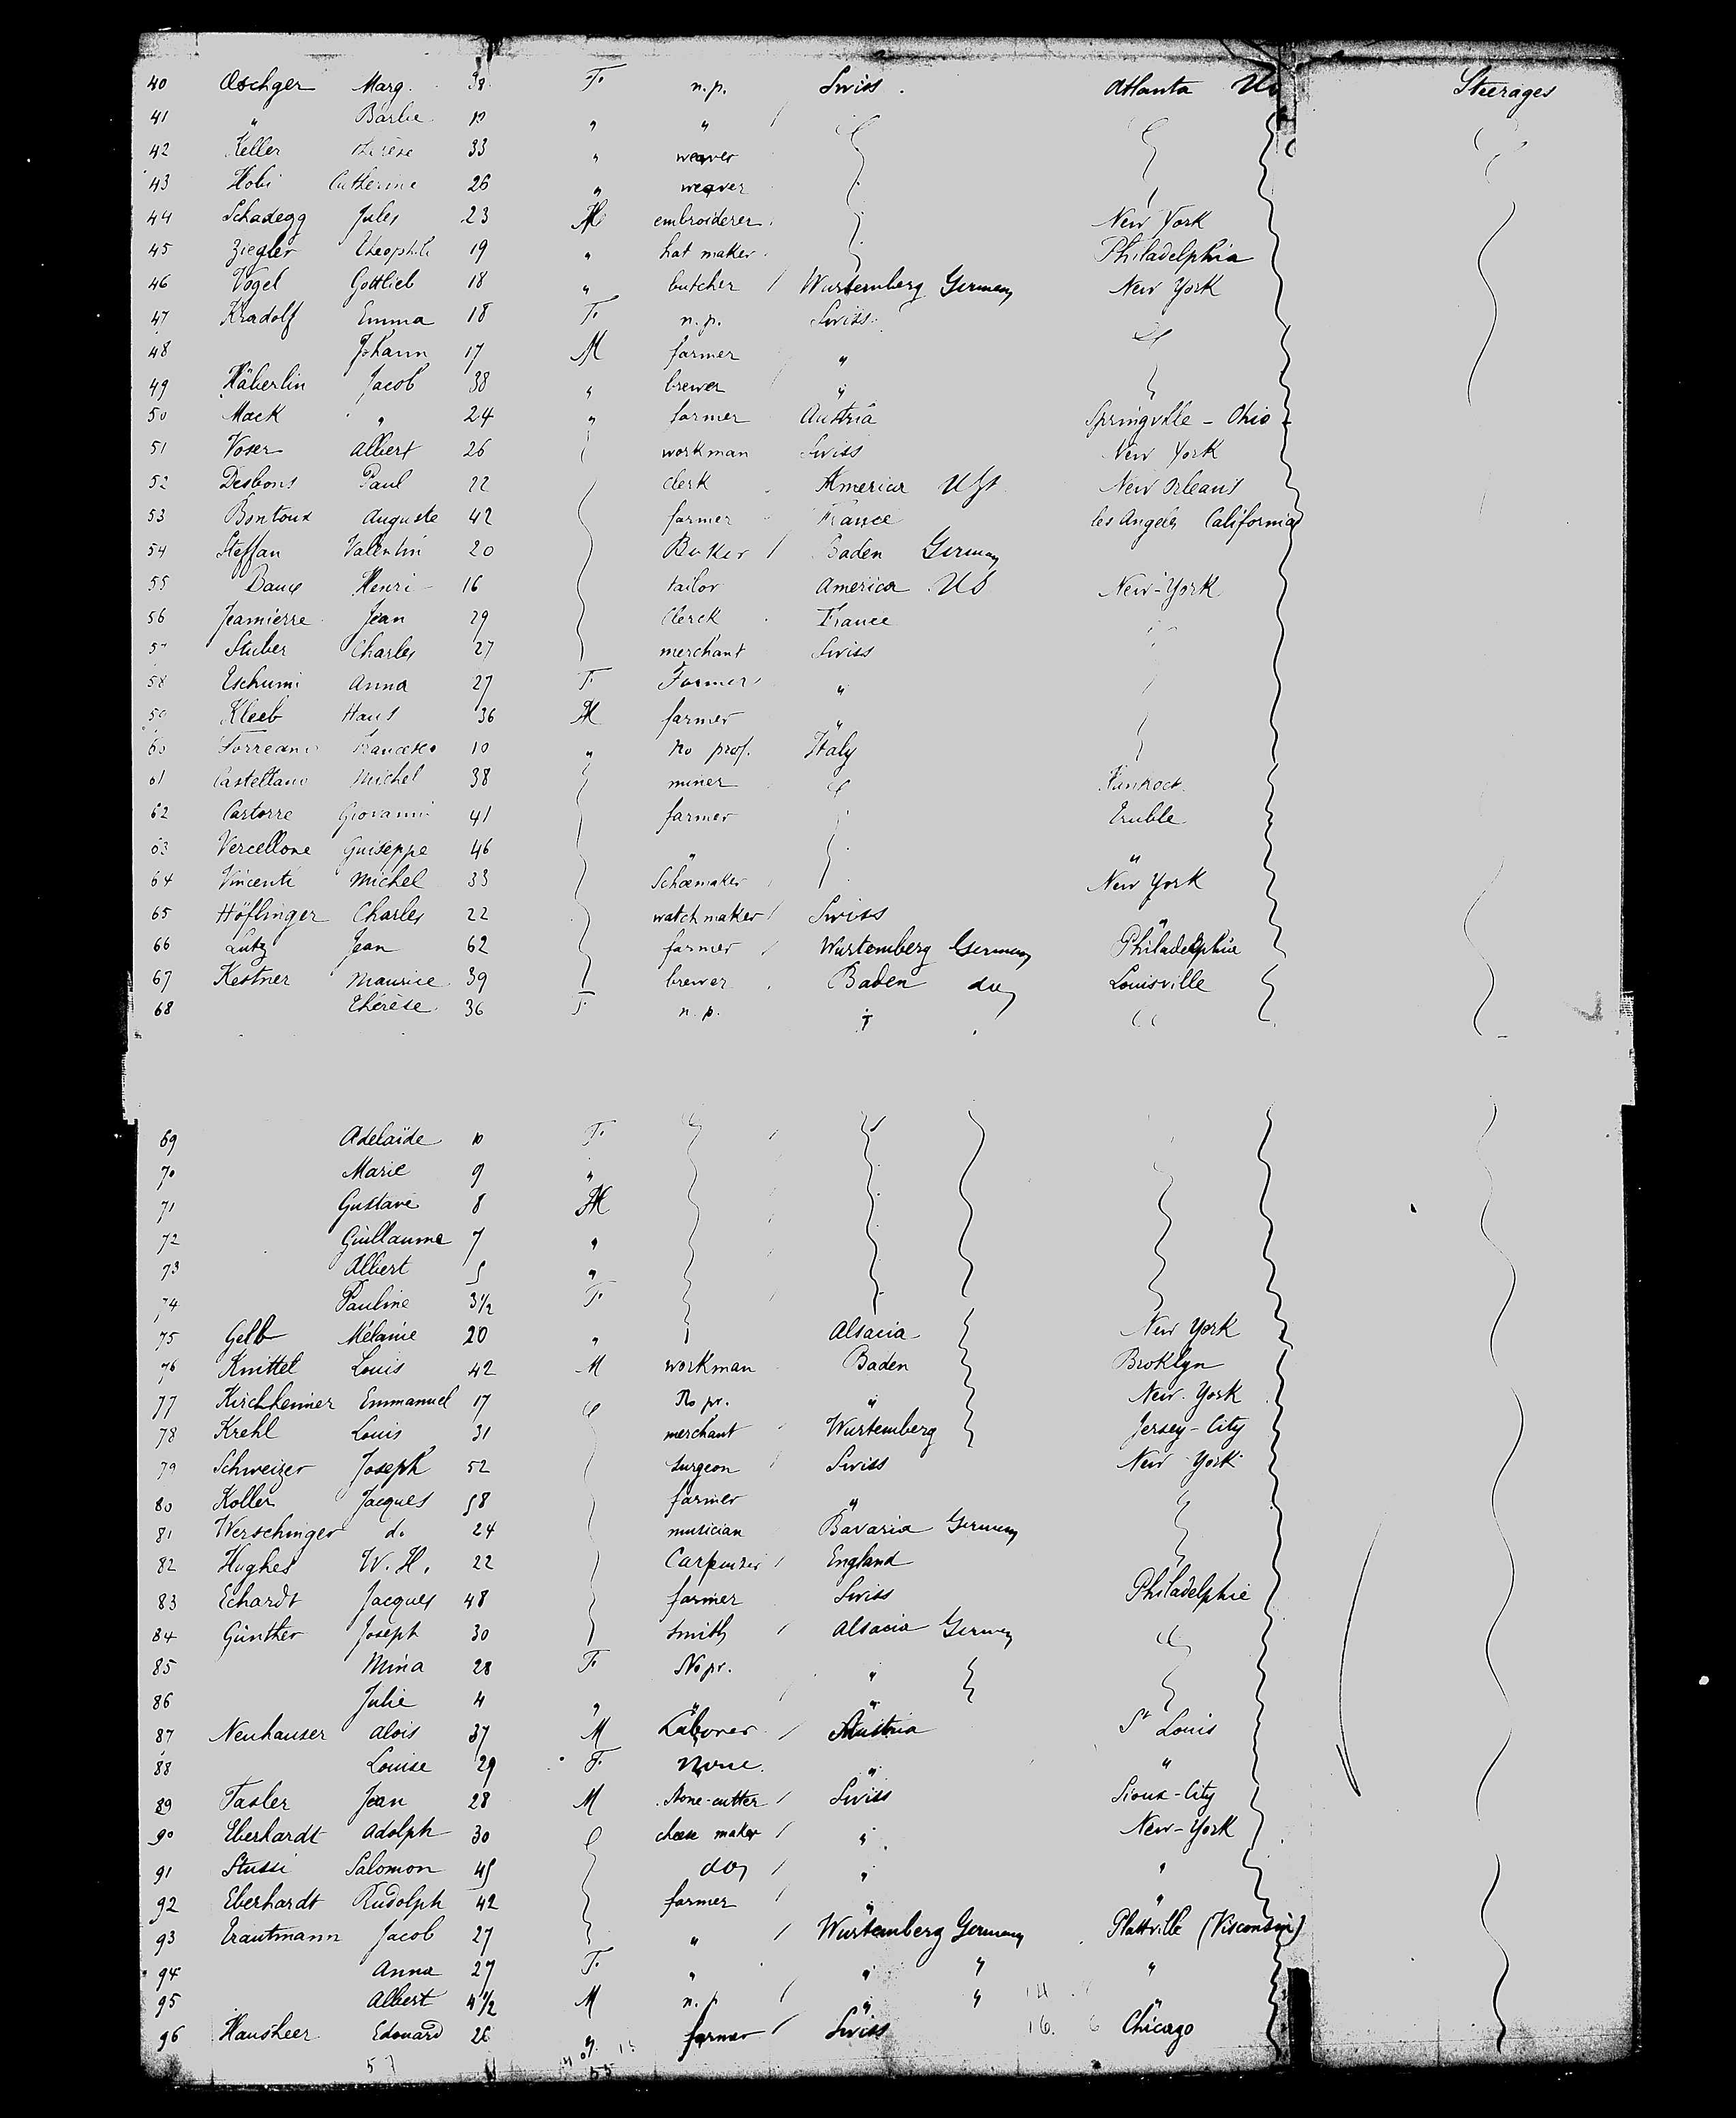 40 Oschger Marg. 38 F. n.p. Swiss. Atlanta Us Steerages
41 " Barbe 10 " "
42 Keller Thérèse 33 " weaver
43 Hobi Catherine 26 " weaver
44 Schadegg Jules 23 M embroiderer New York
45 Ziegler Theophile 19 " hat maker Philadelphia
46 Vogel Gottlieb 18 " butcher / Wurtemberg Germany New York
47 Kradolf Emma 18 F. n.p. Swiss
48 Johann 17 M farmer "
49 Häberlin Jacob 38 " brewer "
50 Mack " 24 " farmer Austria Springville - Ohio
51 Voser Albert 26 workman Swiss New York
52 Desbons Paul 22 clerk America USt New Orleans
53 Bontoux Auguste 42 farmer France les Angeles California
54 Steffan Valentin 20 Baker / Baden Germany
55 Henri 16 tailor America US New-York
56 Jeamierre Jean 29 Clerck France
57 Stuber Charles 27 merchant Swiss
58 Tschumi Anna 27 F. Farmer "
59 Kleeb Hans 36 M farmer "
60 Torreano Francesco 10 " No prof. Italy
61 Castellano Michel 38 miner
62 Castorre Giovanni 41 farmer Truble
63 Vercellone Guiseppe 46 " "
64 Vincenti Michel 33 Schoemaker New York
65 Höflinger Charles 22 watchmaker / Swiss "
66 Lutz Jean 62 farmer / Wurtemberg Germany Philadelphia
67 Kestner Maurice 39 brewer Baden do Louisville
68 Thérèse 36 F. n.p.
69 Adelaïde 10 F.
70 Marie 9 "
71 Gustave 8 M
72 Guillaume 7 "
73 Albert 5 "
74 Pauline 3 1/2 F.
75 Gelb Mélanie 20 " Alsacia New York
76 Knittel Louis 42 M workman Baden Broklyn
77 Kirchheimer Emmanuel 17 No pr. " New-York
78 Krehl Louis 31 merchant Wurtemberg Jersey-City
79 Schweizer Joseph 52 surgeon Swiss New York
80 Koller Jacques 58 farmer "
81 Werschinger do 24 musician Bavaria Germany
82 Hughes W. H. 22 Carpenter / England
83 Echardt Jacques 48 farmer Swiss Philadelphie
84 Günther Joseph 30 smith / Alsacia Germany
85 Mina 28 F. No pr. "
86 Julie 4 " " "
87 Neuhauser Alois 37 M Laborer / Austria St Louis
88 Louise 29 F. None. " "
89 Tasler Jean 28 M Stone-cutter / Swiss Sioux-City
90 Eberhardt Adolph 30 cheese maker / " New-York
91 Stussi Salomon 45 do / " "
92 Eberhardt Rudolph 42 farmer / " "
93 Trautmann Jacob 27 " / Wurtemberg Germany Plattville (Visconsin)
94 Anna 27 F. " " " "
95 Albert 4 1/2 M n.p / " " "
96 Hausheer Edouard 26 " farmer / Swiss Chicago